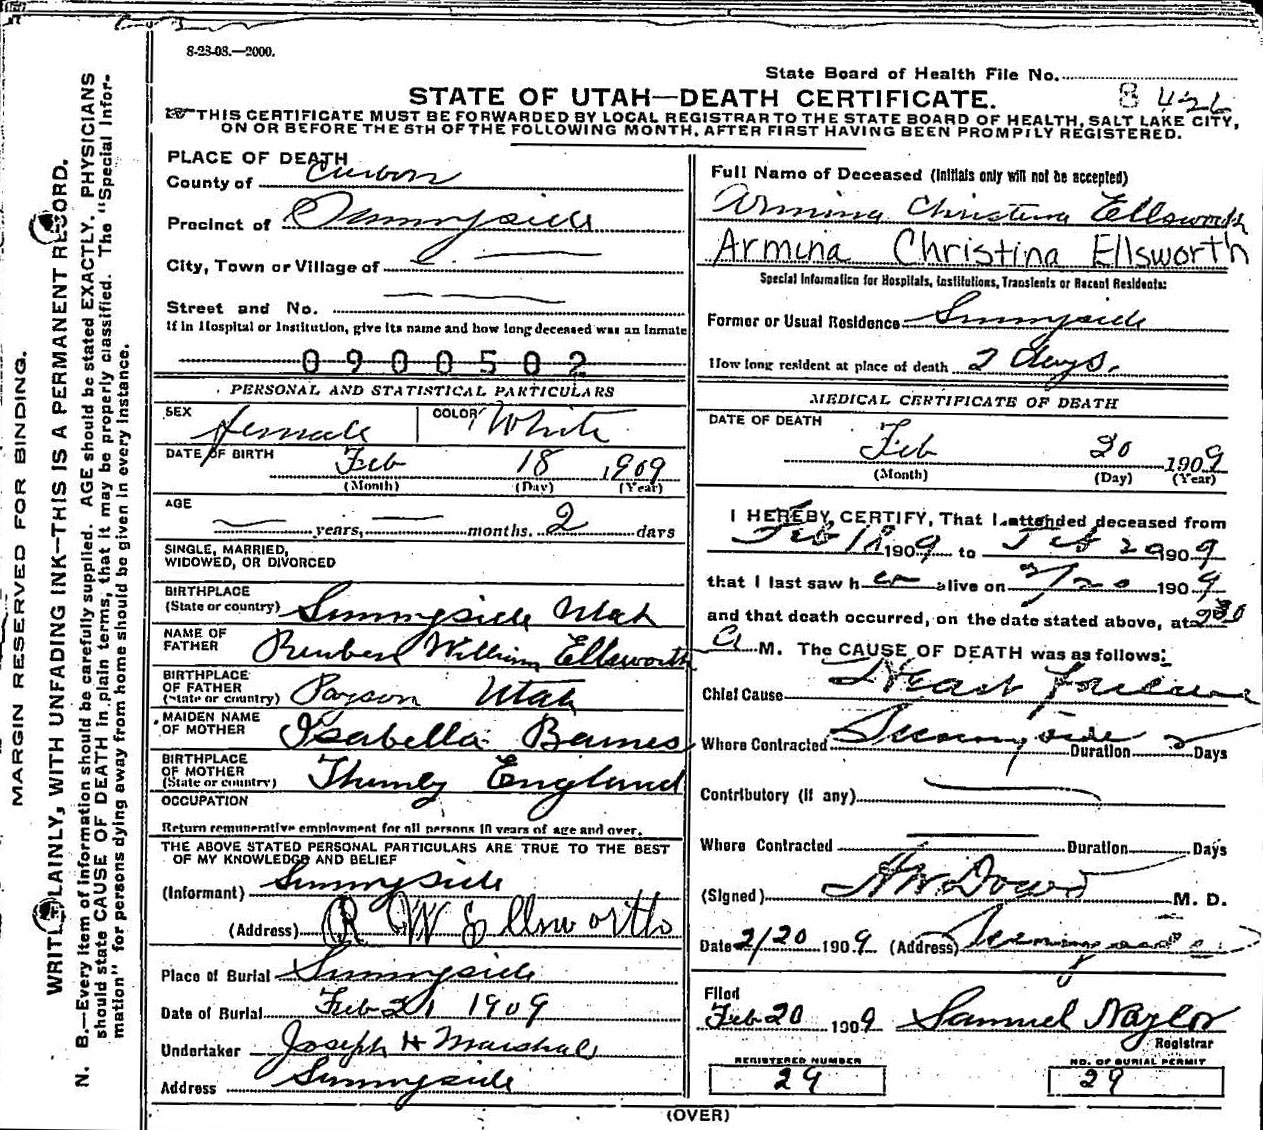 8-23-08.—2000.
State Board of Health File No.
8 426
STATE OF UTAH—DEATH CERTIFICATE.
THIS CERTIFICATE MUST BE FORWARDED BY LOCAL REGISTRAR TO THE STATE BOARD OF HEALTH, SALT LAKE CITY,
ON OR BEFORE THE 5TH OF THE FOLLOWING MONTH, AFTER FIRST HAVING BEEN PROMPTLY REGISTERED.
MARGIN RESERVED FOR BINDING.
WRITE PLAINLY, WITH UNFADING INK—THIS IS A PERMANENT RECORD.
N. B.—Every item of information should be carefully supplied. AGE should be stated EXACTLY. PHYSICIANS
should state CAUSE OF DEATH in plain terms, that it may be properly classified. The "Special Infor-
mation" for persons dying away from home should be given in every instance.
PLACE OF DEATH
County of Carbon
Precinct of Sunnyside
City, Town or Village of
Street and No.
If in Hospital or Institution, give its name and how long deceased was an inmate
0900502
PERSONAL AND STATISTICAL PARTICULARS
SEX Female COLOR White
DATE OF BIRTH Feb 18 1909
(Month) (Day) (Year)
AGE
— years, — months. 2 days
SINGLE, MARRIED,
WIDOWED, OR DIVORCED
BIRTHPLACE
(State or country) Sunnyside Utah
NAME OF
FATHER Reuben William Ellsworth
BIRTHPLACE
OF FATHER
(State or country) Payson Utah
MAIDEN NAME
OF MOTHER Isabella Barnes
BIRTHPLACE
OF MOTHER
(State or country) England
OCCUPATION
Return remunerative employment for all persons 10 years of age and over.
THE ABOVE STATED PERSONAL PARTICULARS ARE TRUE TO THE BEST
OF MY KNOWLEDGE AND BELIEF
(Informant) Sunnyside
(Address) R W Ellsworth
Place of Burial Sunnyside
Date of Burial Feb 21 1909
Undertaker Joseph H Marshall
Address Sunnyside
Full Name of Deceased (Initials only will not be accepted)
Armina Christina Ellsworth
Armina Christina Ellsworth
Special Information for Hospitals, Institutions, Transients or Recent Residents:
Former or Usual Residence Sunnyside
How long resident at place of death 2 days.
MEDICAL CERTIFICATE OF DEATH
DATE OF DEATH
Feb 20 1909
(Month) (Day) (Year)
I HEREBY CERTIFY, That I attended deceased from
Feb 18 1909 to Feb 20 1909
that I last saw her alive on 2/20 1909
and that death occurred, on the date stated above, at 2 30
A M. The CAUSE OF DEATH was as follows:
Chief Cause Heart failure
Where Contracted Sunnyside Duration 2 Days
Contributory (if any)
Where Contracted Duration Days
(Signed) H W Dowd M. D.
Date 2/20 1909 (Address) Sunnyside
Filed
Feb 20 1909 Samuel Naylor
Registrar
REGISTERED NUMBER
29
NO. OF BURIAL PERMIT
29
(OVER)